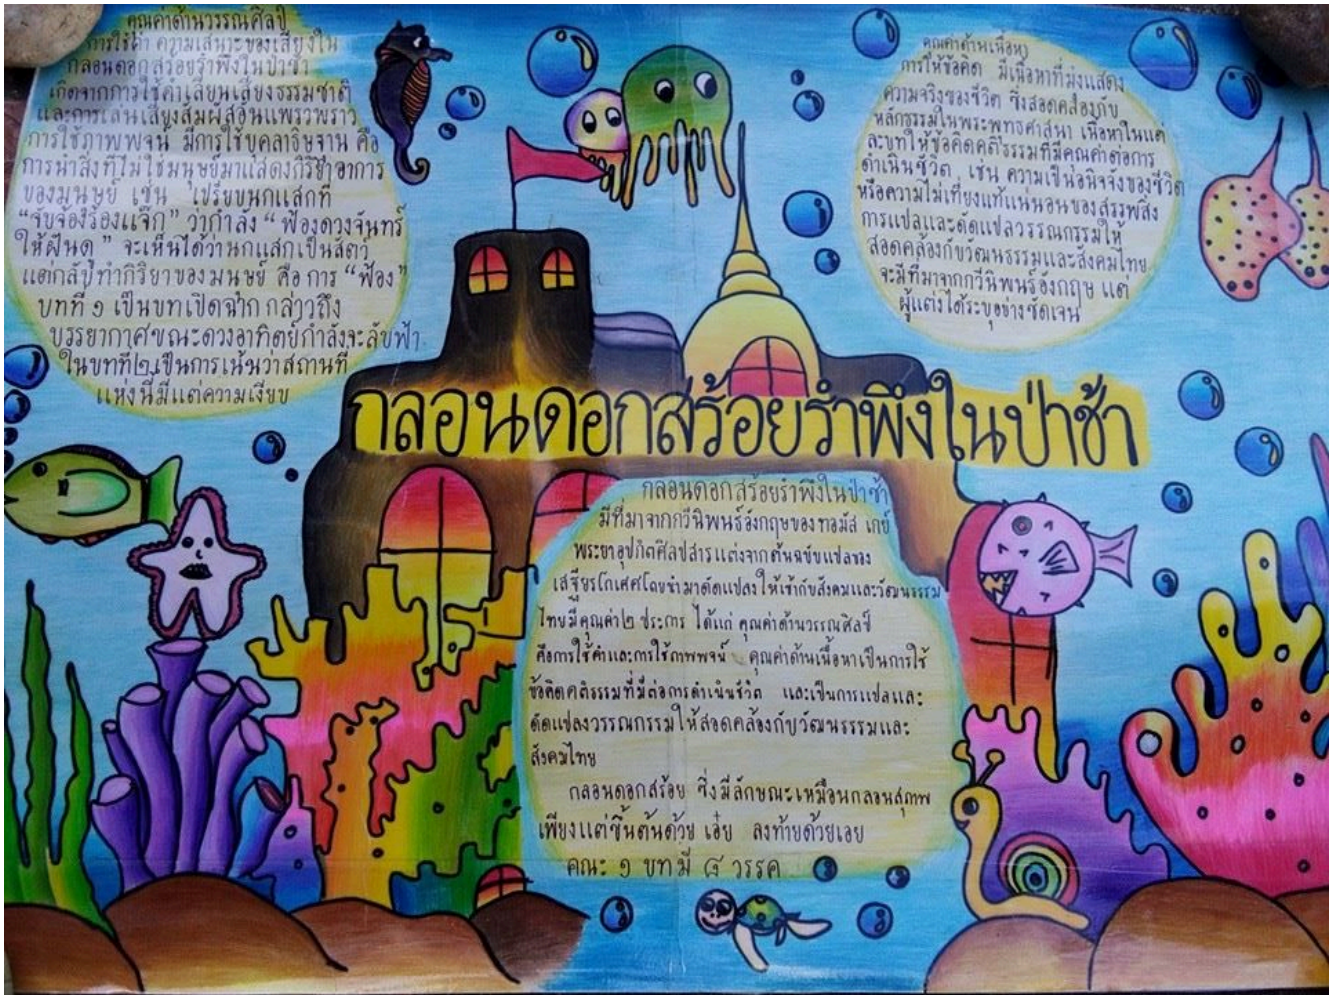 คุณค่าด้านวรรณศิลป์
การใช้คำ ความเสนาะของเสียงใน
กลอนดอกสร้อยรำพึงในป่าช้า
เกิดจากการใช้คำเลียนเสียงธรรมชาติ
และการเล่นเสียงสัมผัสอันแพรวพราว
การใช้ภาพพจน์ มีการใช้บุคลาธิษฐาน คือ
การนำสิ่งที่ไม่ใช่มนุษย์มาแสดงกิริยาอาการ
ของมนุษย์ เช่น เปรียบนกแสกที่
“จับจ้องร้องแจ๊ก” ว่ากำลัง “ฟ้องดวงจันทร์
ให้ฝันดู” จะเห็นได้ว่านกแสกเป็นสัตว์
แต่กลับทำกิริยาของมนุษย์ คือ การ “ฟ้อง”
บทที่ ๑ เป็นบทเปิดฉาก กล่าวถึง
บรรยากาศขณะดวงอาทิตย์กำลังจะลับฟ้า
ในบทที่๒เป็นการเน้นว่าสถานที่
แห่งนี้มีแต่ความเงียบ
คุณค่าด้านเนื้อหา
การให้ข้อคิด มีเนื้อหาที่มุ่งแสดง
ความจริงของชีวิต ซึ่งสอดคล้องกับ
หลักธรรมในพระพุทธศาสนา เนื้อหาในแต่
ละบทให้ข้อคิดคติธรรมที่มีคุณค่าต่อการ
ดำเนินชีวิต เช่น ความเป็นอนิจจังของชีวิต
หรือความไม่เที่ยงแท้แน่นอนของสรรพสิ่ง
การแปลและดัดแปลวรรณกรรมให้
สอดคล้องกับวัฒนธรรมและสังคมไทย
จะมีที่มาจากกวีนิพนธ์อังกฤษ แต่
ผู้แต่งได้ระบุอย่างชัดเจน
กลอนดอกสร้อยรำพึงในป่าช้า
กลอนดอกสร้อยรำพึงในป่าช้า
มีที่มาจากกวีนิพนธ์อังกฤษของทอมัส เกย์
พระยาอุปกิตศิลปสารแต่งจากต้นฉบับแปลของ
เสฐียรโกเศศโดยนำมาดัดแปลงให้เข้ากับสังคมและวัฒนธรรม
ไทยมีคุณค่า๒ ประการ ได้แก่ คุณค่าด้านวรรณศิลป์
คือการใช้คำและการใช้ภาพพจน์ คุณค่าด้านเนื้อหาเป็นการใช้
ข้อคิดคติธรรมที่มีต่อการดำเนินชีวิต และเป็นการแปลและ
ดัดแปลงวรรณกรรมให้สอดคล้องกับวัฒนธรรมและ
สังคมไทย
กลอนดอกสร้อย ซึ่งมีลักษณะเหมือนกลอนสุภาพ
เพียงแต่ขึ้นต้นด้วย เอ๋ย ลงท้ายด้วยเอย
คณะ ๑ บท มี ๘ วรรค